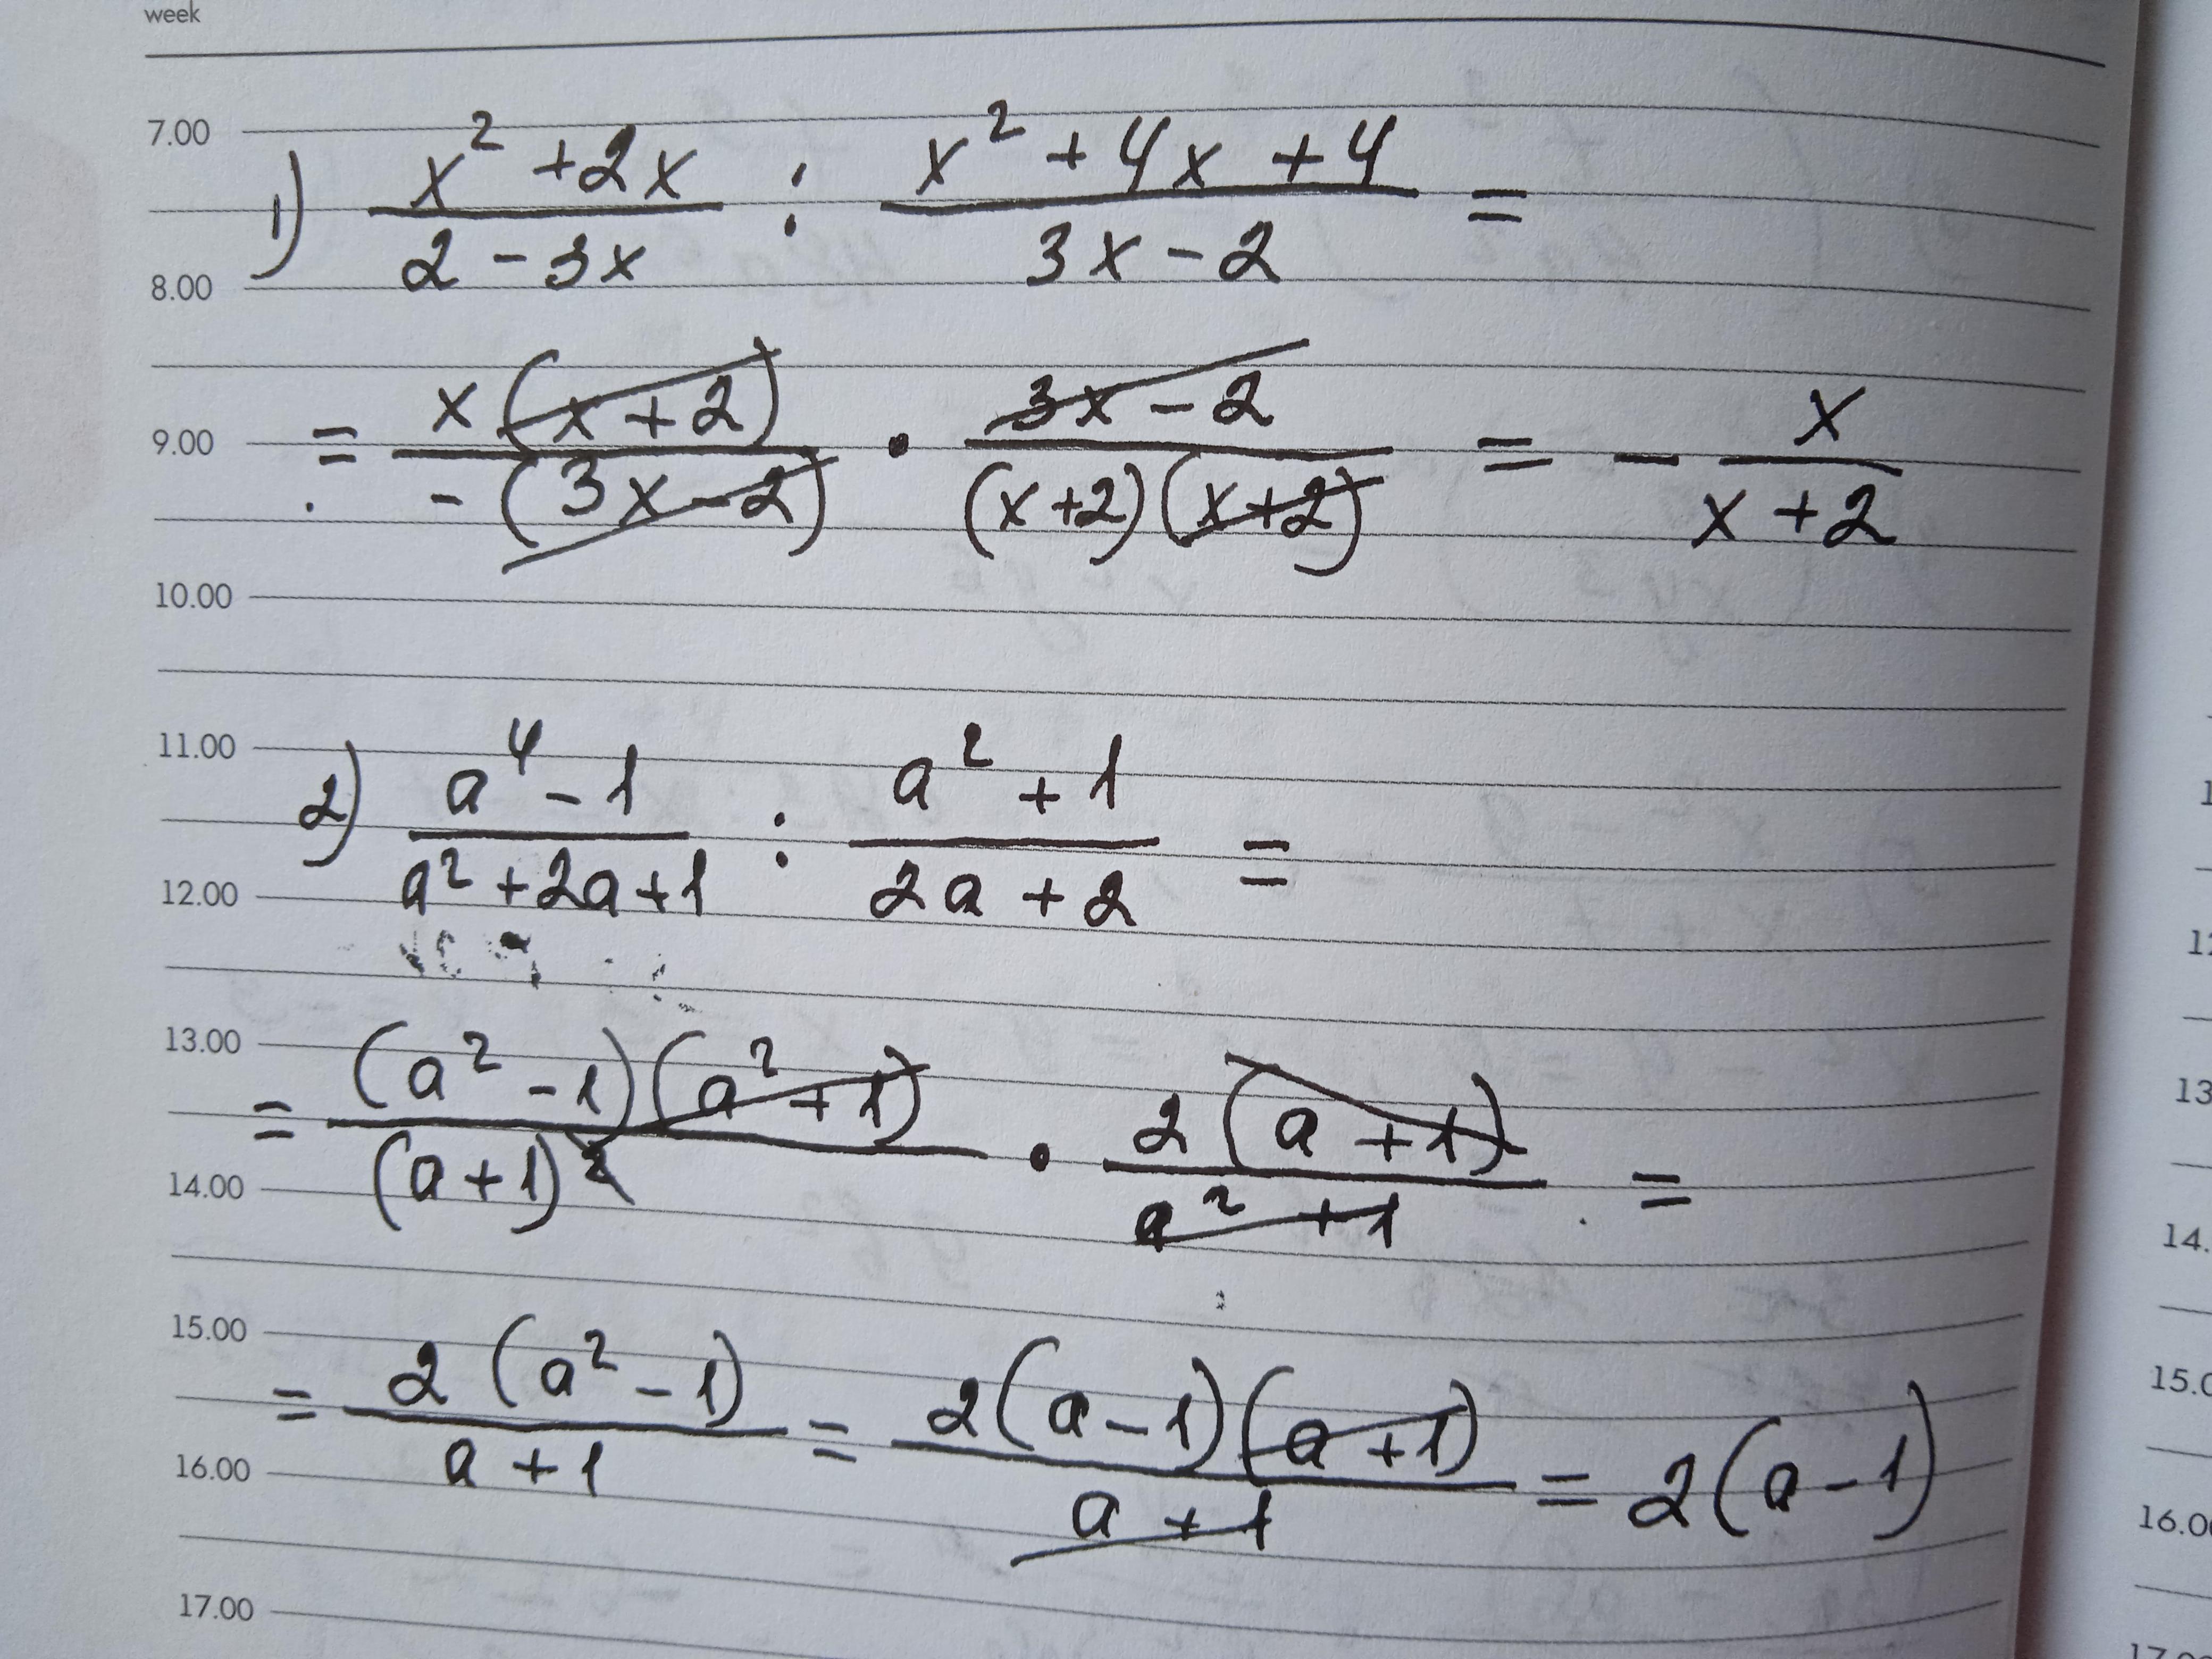 week
7.00
1) \frac{x^2+2x}{2-3x} : \frac{x^2+4x+4}{3x-2} =
8.00
9.00 = \frac{x(x+2)}{-(3x-2)} · \frac{3x-2}{(x+2)(x+2)} = -\frac{x}{x+2}
10.00
11.00
2) \frac{a^4-1}{a^2+2a+1} : \frac{a^2+1}{2a+2} =
12.00
13.00
= \frac{(a^2-1)(a^2+1)}{(a+1)^2} · \frac{2(a+1)}{a^2+1} =
14.00
15.00
= \frac{2(a^2-1)}{a+1} = \frac{2(a-1)(a+1)}{a+1} = 2(a-1)
16.00
17.00
12
13
14.
15.0
16.00
17.00